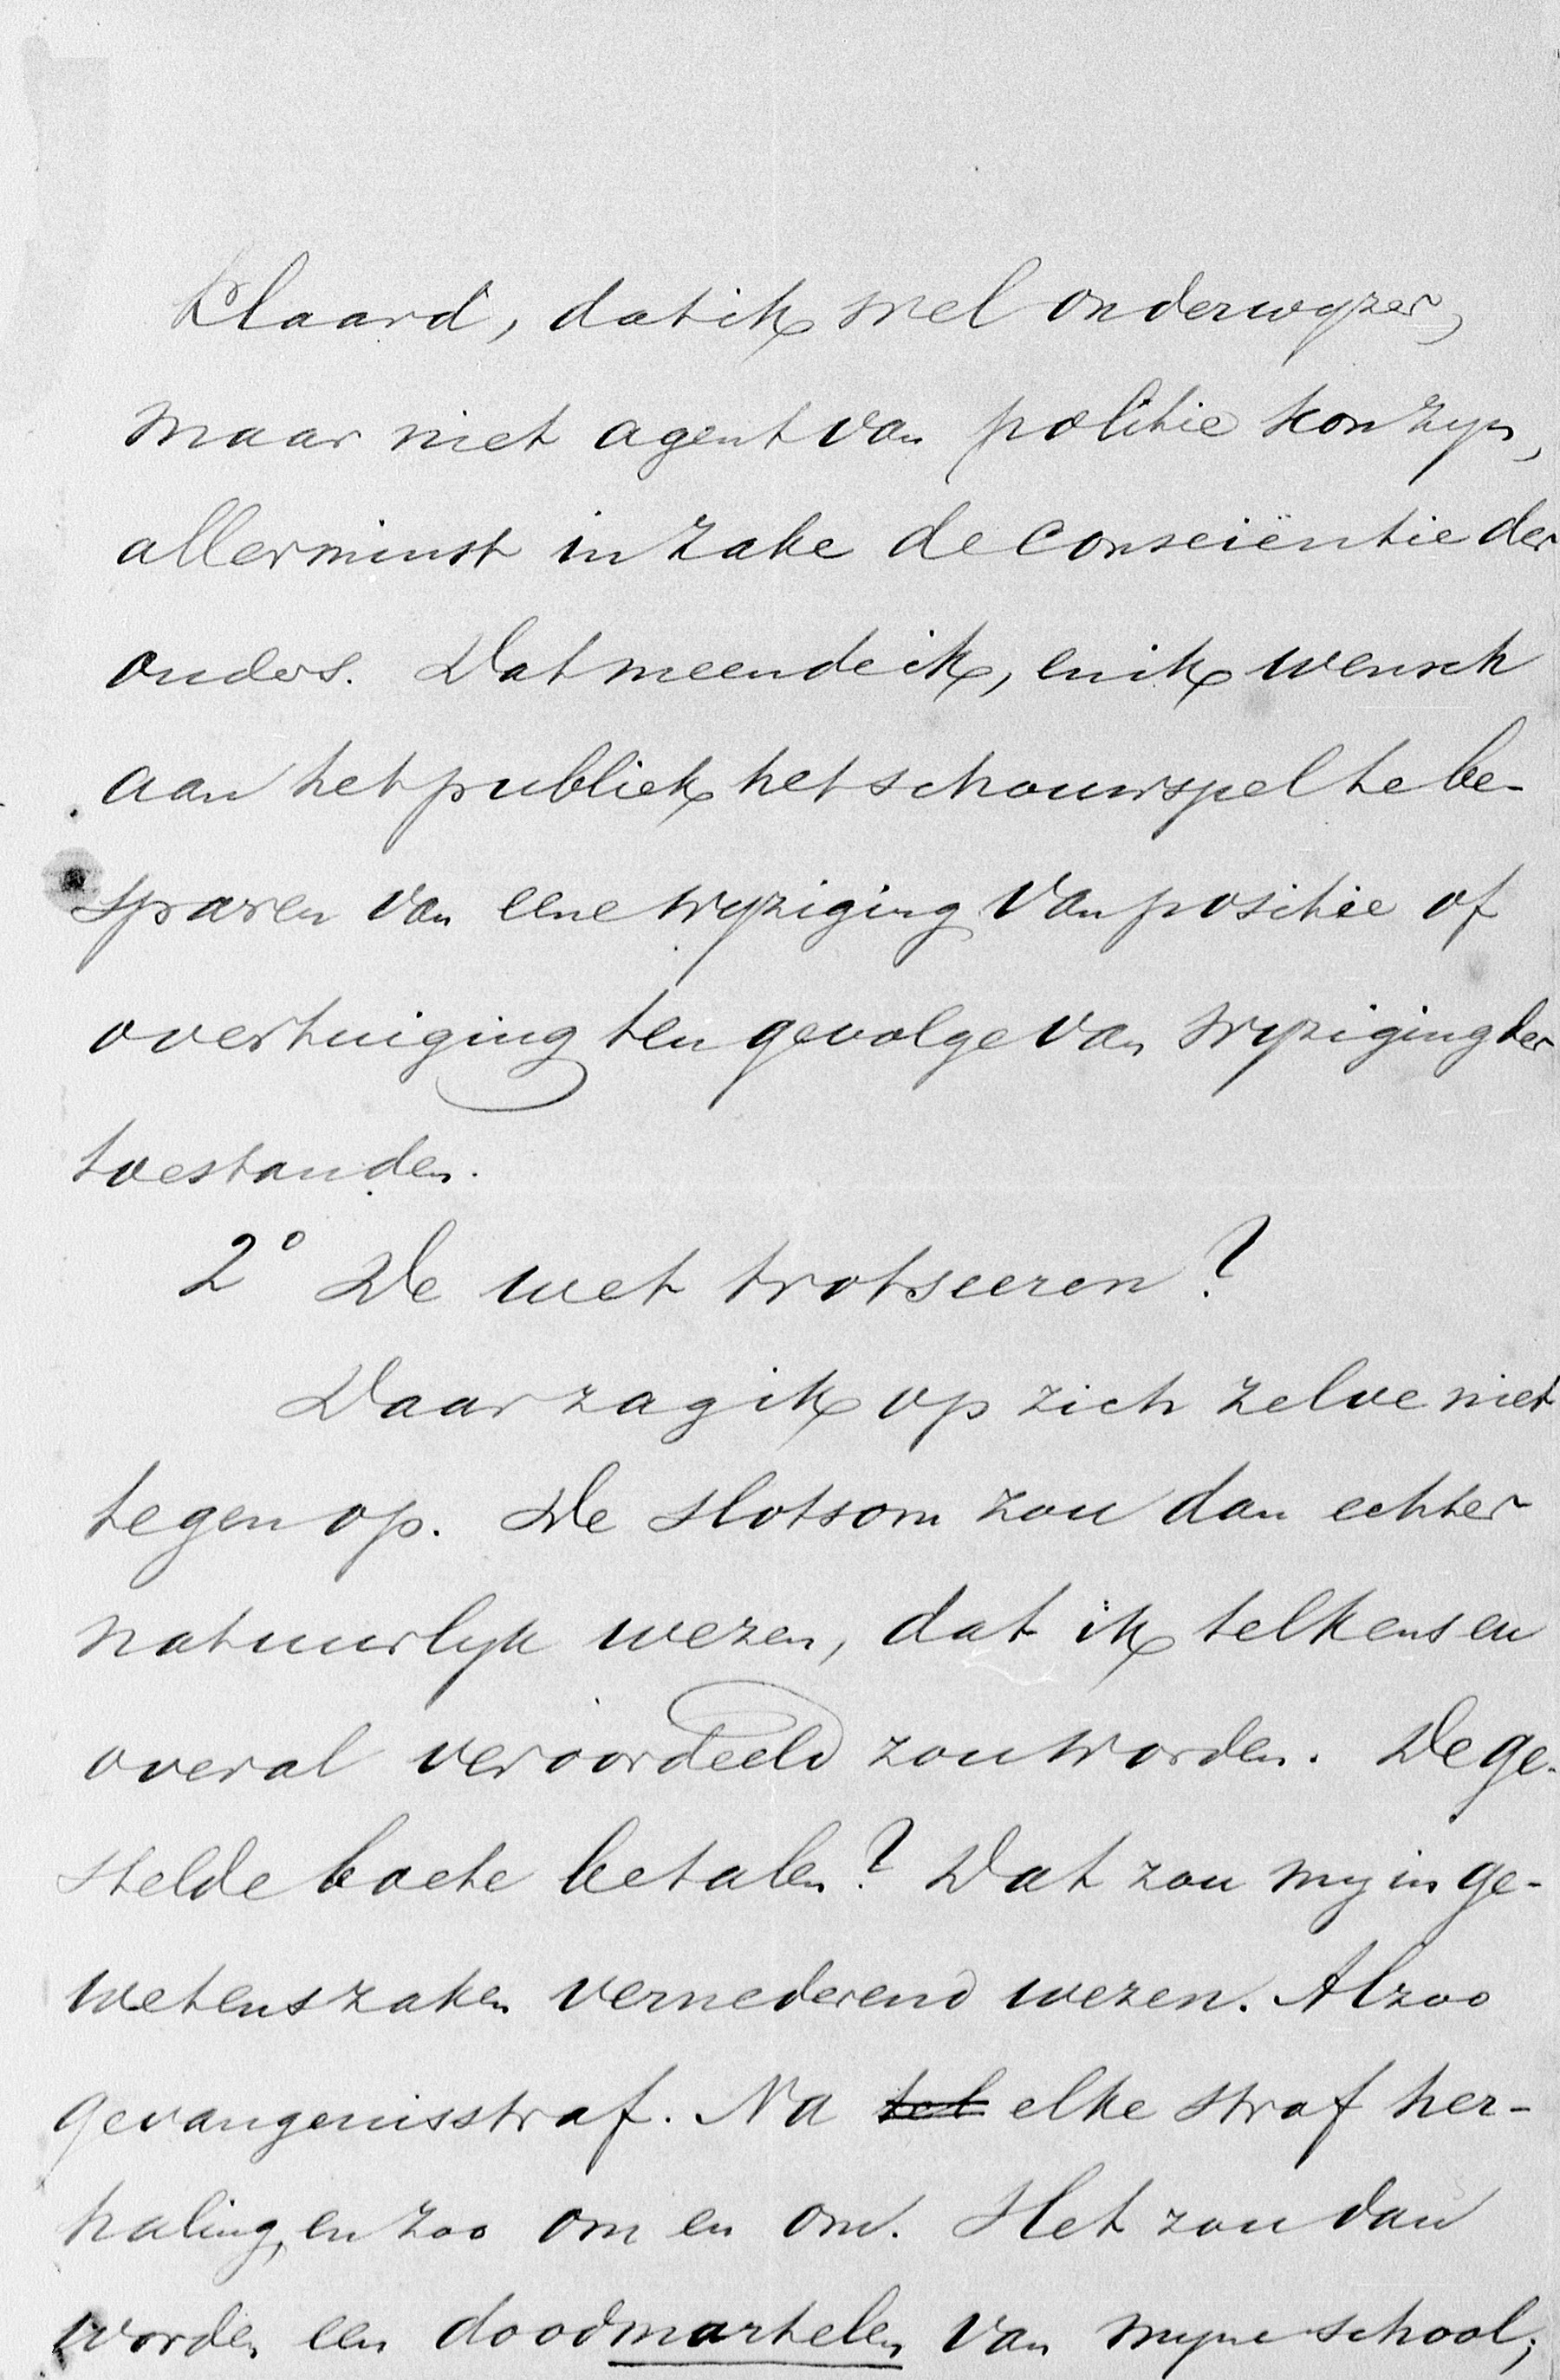 klaard, dat ik wel onderwyzer,
maar niet agent van politie kon zyn,
allerminst in zake de consciëntie der
ouders. Dat meende ik, en ik wensch
aan het publiek het schouwspel te be-
sparen van eene wyziging van positie of
overtuiging ten gevolge van wyziging der
toestanden.
2° De wet trotseeren?
Daar zag ik op zich zelve niet
tegen op. De slotsom zou dan echter
natuurlyk wezen, dat ik telkens en
overal veroordeeld zou worden. De ge-
stelde boete betalen? Dat zou my in ge-
wetenszaken vernederend wezen. Alzoo
gevangenisstraf. Na elke straf her-
haling, en zoo om en om. Het zou dan
worden een doodmartelen van myne school;